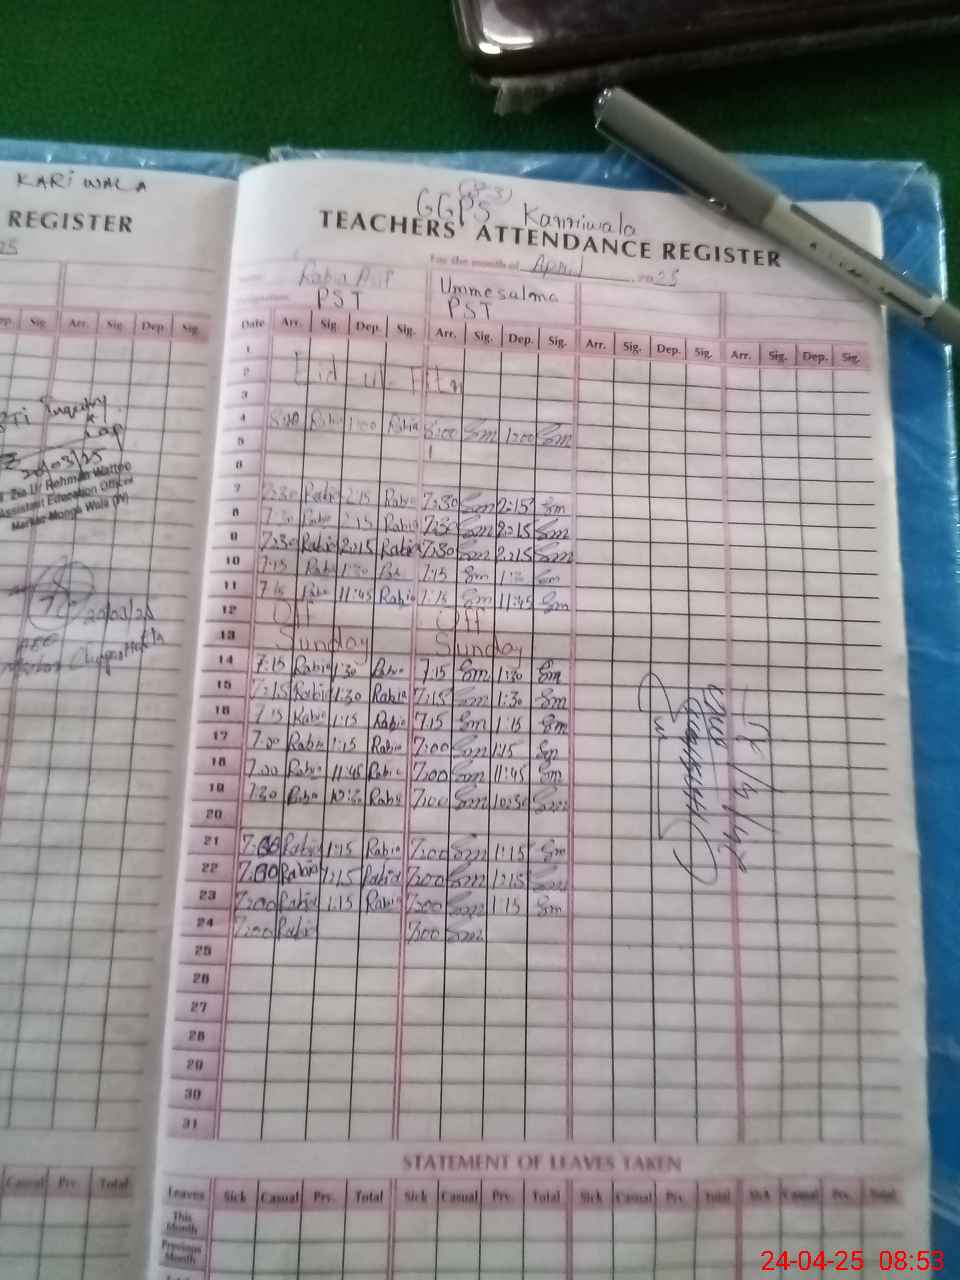 KARI WALA
REGISTER
25
Dep. Sig. Arr. Sig. Dep. Sig.
Inquiry
20/03/25
Zia Ur Rehman Wattoo
Assistant Education Officer
Markaz Monga Wala (IV)
20/03/25
Casual Prv. Total
GGPS Kanriwala
TEACHERS' ATTENDANCE REGISTER
For the month of April 2025
Rabia Ummesalma
Designation PST PST
Date Arr. Sig. Dep. Sig. Arr. Sig. Dep. Sig. Arr. Sig. Dep. Sig. Arr. Sig. Dep. Sig.
1
2 Eid ul-Fitr
3
4 8:00 Rabia 1:00 Rabia 8:00 Sm 1:00 Sm
5
6
7 7:30 Rabia 2:15 Rabia 7:30 Sm 2:15 Sm
8 7:30 Rabia 2:15 Rabia 7:30 Sm 2:15 Sm
9 7:30 Rabia 2:15 Rabia 7:30 Sm 2:15 Sm
10 7:15 Rabia 1:30 Rabia 7:15 Sm 1:30 Sm
11 7:15 Rabia 11:45 Rabia 7:15 Sm 11:45 Sm
12 Off Off
13 Sunday Sunday
14 7:15 Rabia 1:30 Rabia 7:15 Sm 1:30 Sm
15 7:15 Rabia 1:30 Rabia 7:15 Sm 1:30 Sm
16 7:15 Rabia 1:15 Rabia 7:15 Sm 1:15 Sm
17 7:00 Rabia 1:15 Rabia 7:00 Sm 1:15 Sm
18 7:00 Rabia 11:45 Rabia 7:00 Sm 11:45 Sm
19 7:30 Rabia 10:30 Rabia 7:00 Sm 10:30 Sm
20
21 7:00 Rabia 1:15 Rabia 7:00 Sm 1:15 Sm
22 7:00 Rabia 1:15 Rabia 7:00 Sm 1:15 Sm
23 7:00 Rabia 1:15 Rabia 7:00 Sm 1:15 Sm
24 7:00 Rabia 7:00 Sm
25
26
27
28
29
30
31
STATEMENT OF LEAVES TAKEN
Leaves Sick Casual Prv. Total Sick Casual Prv. Total Sick Casual Prv. Total Sick Casual Prv. Total
This Month
Previous Month
24-04-25 08:53